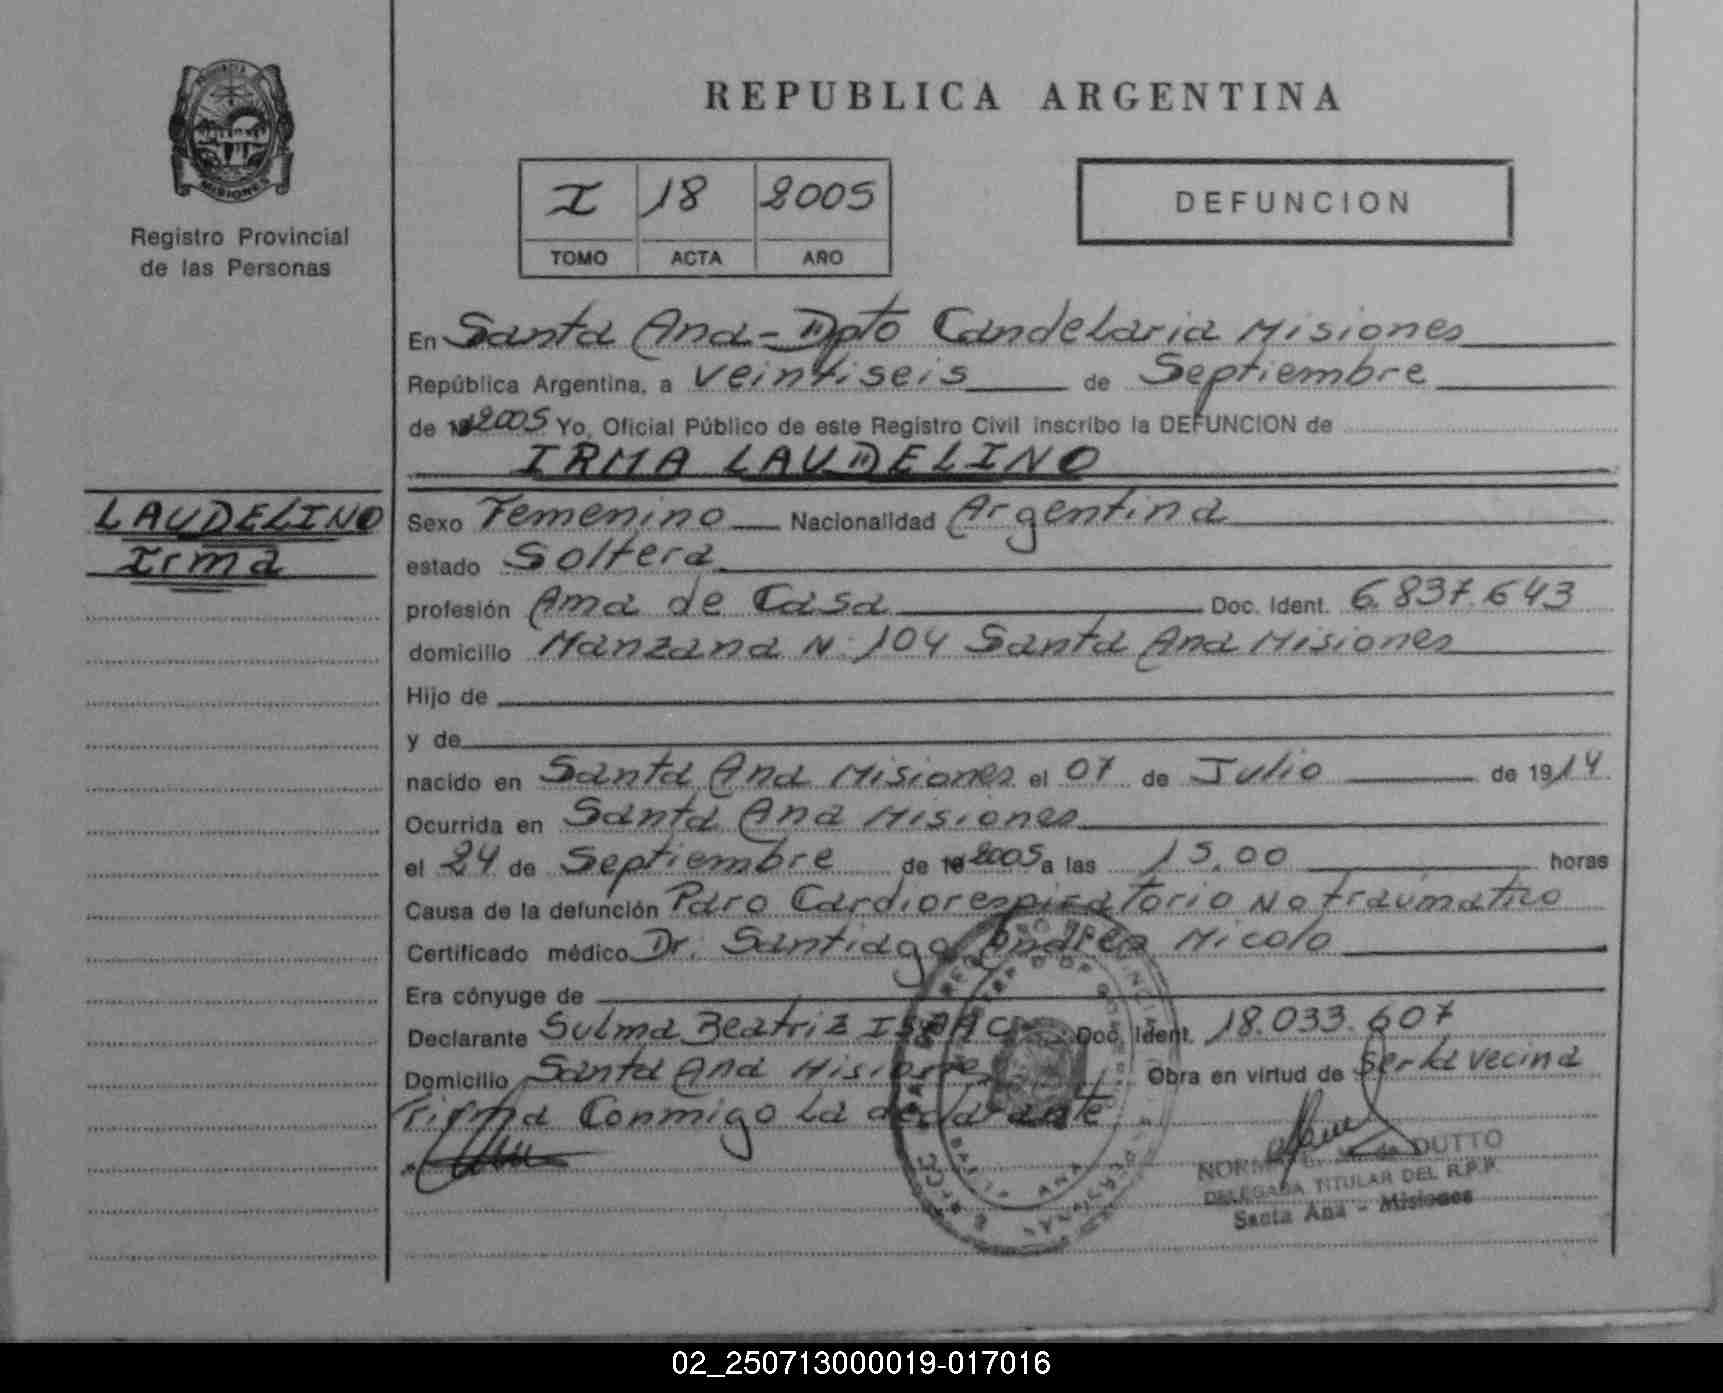 REPUBLICA ARGENTINA
PROVINCIA DE
MISIONES
Registro Provincial
de las Personas
I 18 2005
TOMO ACTA AÑO
DEFUNCION
En Santa Ana - Dpto Candelaria Misiones
República Argentina, a veintiseis de Septiembre
de 19 2005 Yo, Oficial Público de este Registro Civil inscribo la DEFUNCION de
IRMA LAUDELINO
LAUDELINO
Irma
Sexo Femenino Nacionalidad Argentina
estado Soltera
profesión Ama de Casa Doc. Ident. 6.837.643
domicilio Manzana N. 104 Santa Ana Misiones
Hijo de
y de
nacido en Santa Ana Misiones el 07 de Julio de 1914
Ocurrida en Santa Ana Misiones
el 24 de Septiembre de 19 2005 a las 15.00 horas
Causa de la defunción Paro Cardiorespiratorio No traumatico
Certificado médico Dr. Santiago Andres Micolo
Era cónyuge de
Declarante Sulma Beatriz ISAAC Doc. Ident. 18.033.607
Domicilio Santa Ana Misiones Obra en virtud de Ser la vecina
Firma Conmigo la declarante
NORMA DUTTO
DELEGADA TITULAR DEL R.P.P.
Santa Ana - Misiones
02_250713000019-017016